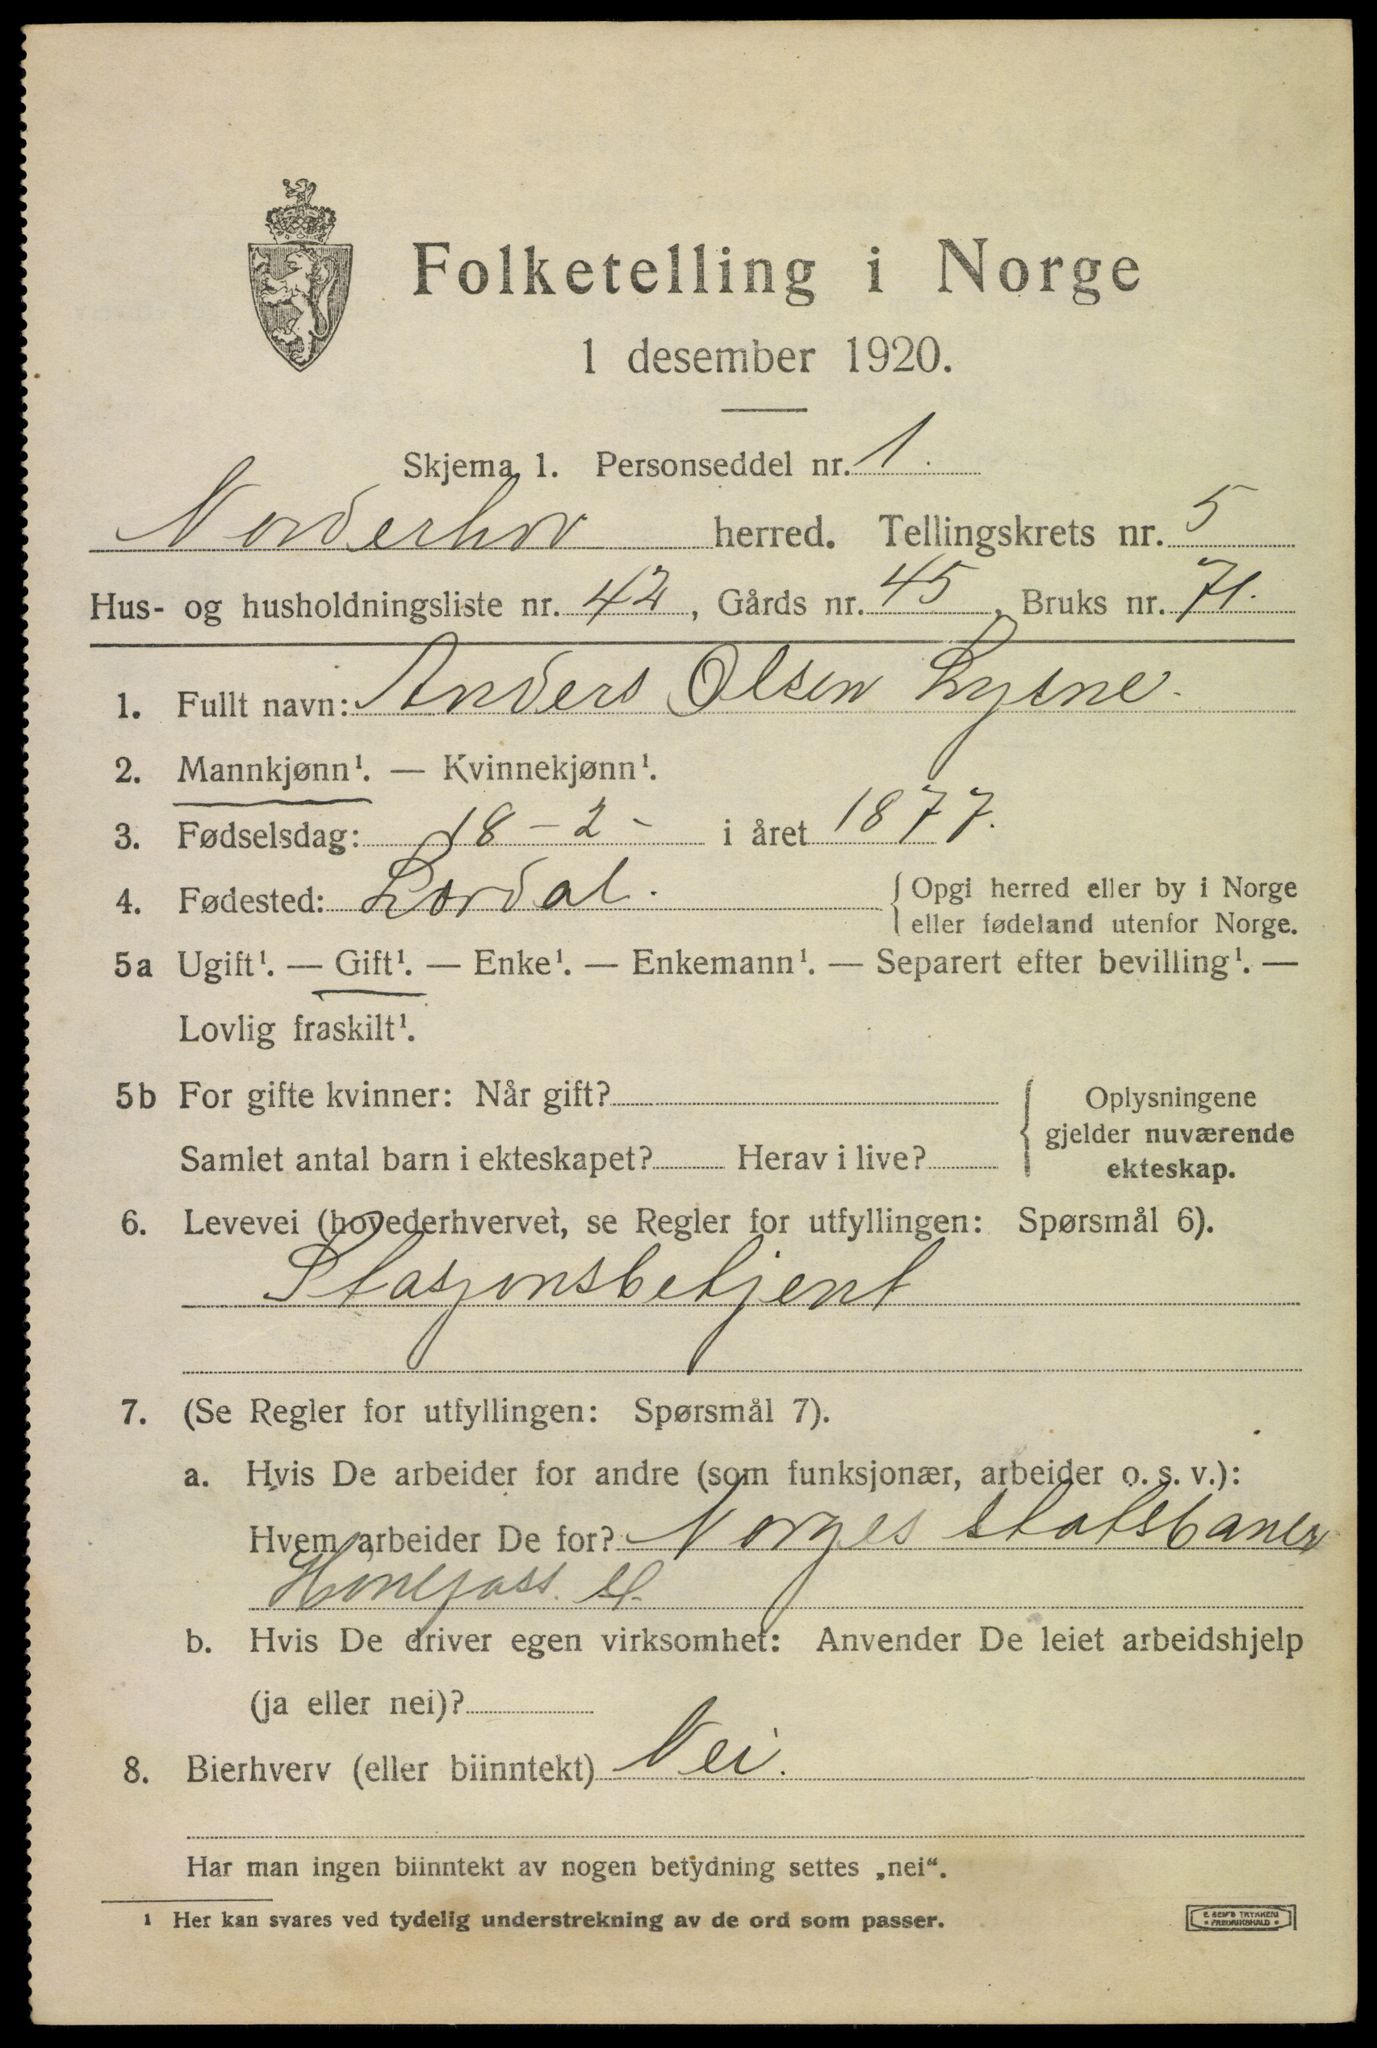 Folketelling i Norge
1 desember 1920.
Skjema 1. Personseddel nr. 1.
Norderhov herred. Tellingskrets nr. 5
Hus- og husholdningsliste nr. 42, Gårds nr. 45, Bruks nr. 71.
1. Fullt navn: Anders Olsen Lysne.
2. Mannkjønn¹. — Kvinnekjønn¹.
3. Fødselsdag: 18 - 2 - i året 1877.
4. Fødested: Lærdal. { Opgi herred eller by i Norge
eller fødeland utenfor Norge.
5a Ugift¹. — Gift¹. — Enke¹. — Enkemann¹. — Separert efter bevilling¹. —
Lovlig fraskilt¹.
5b For gifte kvinner: Når gift?
Samlet antal barn i ekteskapet? Herav i live?
{ Oplysningene
gjelder nuværende
ekteskap.
6. Levevei (hovederhvervet, se Regler for utfyllingen: Spørsmål 6).
Stasjonsbetjent
7. (Se Regler for utfyllingen: Spørsmål 7).
a. Hvis De arbeider for andre (som funksjonær, arbeider o. s. v.):
Hvem arbeider De for? Norges statsbaner
Hønefoss. st.
b. Hvis De driver egen virksomhet: Anvender De leiet arbeidshjelp
(ja eller nei)?
8. Bierhverv (eller biinntekt) Nei.
Har man ingen biinntekt av nogen betydning settes „nei“.
¹ Her kan svares ved tydelig understrekning av de ord som passer.
E. SEM'S TRYKKERI
• FREDRIKSHALD •